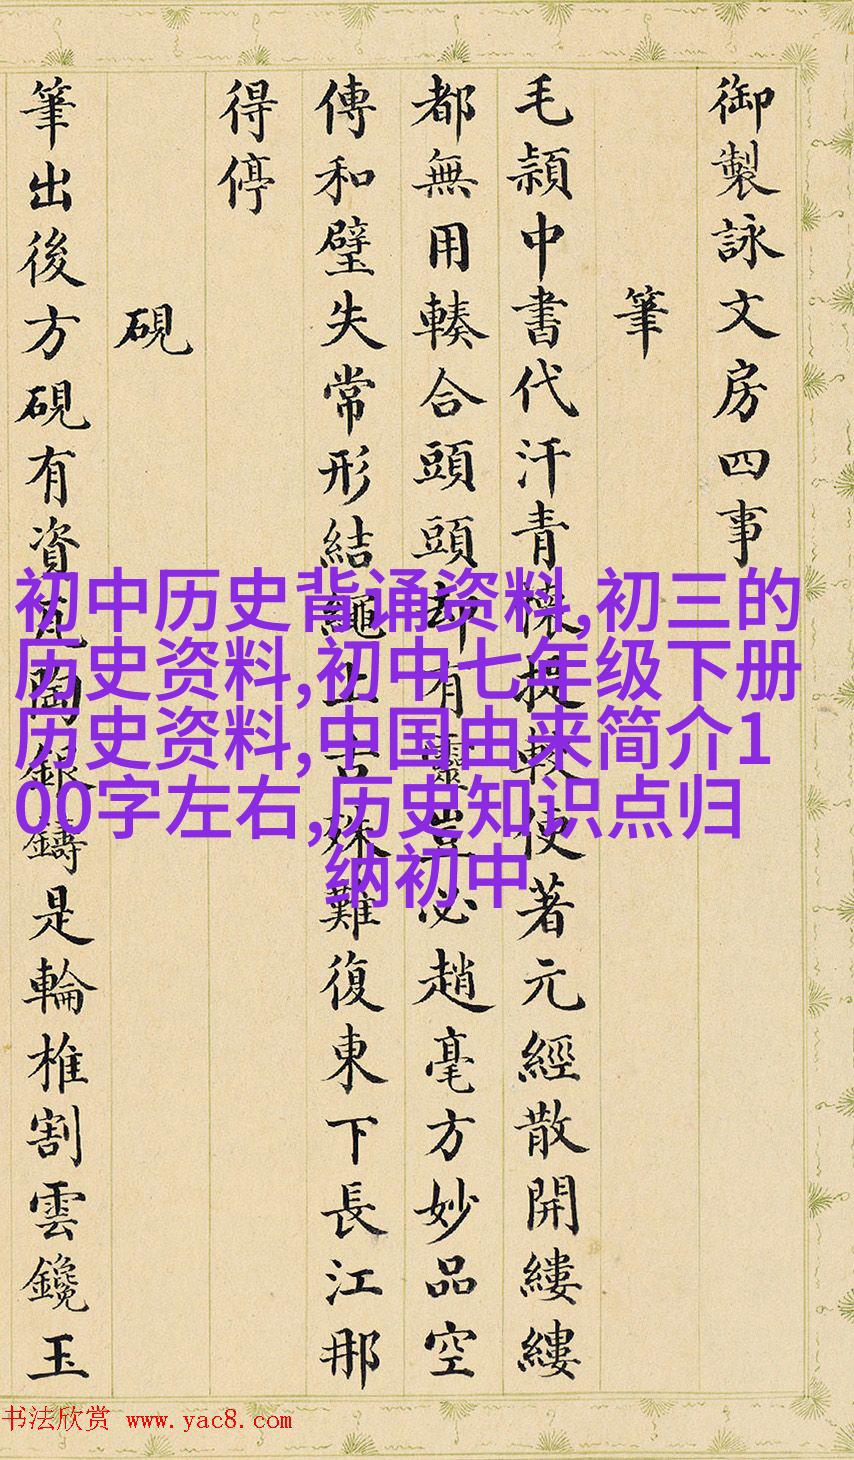 御製詠文房四事
筆
毛頴中書代汗青提較使著元經散開縷縷
都無用輳合頭頭却有靈豈必趙毫方妙品空
傳和璧失常形結繩上古殊難復東下長江那
得停
硯
筆出後方硯有資瓦陶銀鑄是輪椎割雲鑱玉
初中历史背诵资料,初三的
历史资料,初中七年级下册
历史资料,中国由来简介1
00字左右,历史知识点归
纳初中
书法欣赏 www.yac8.com